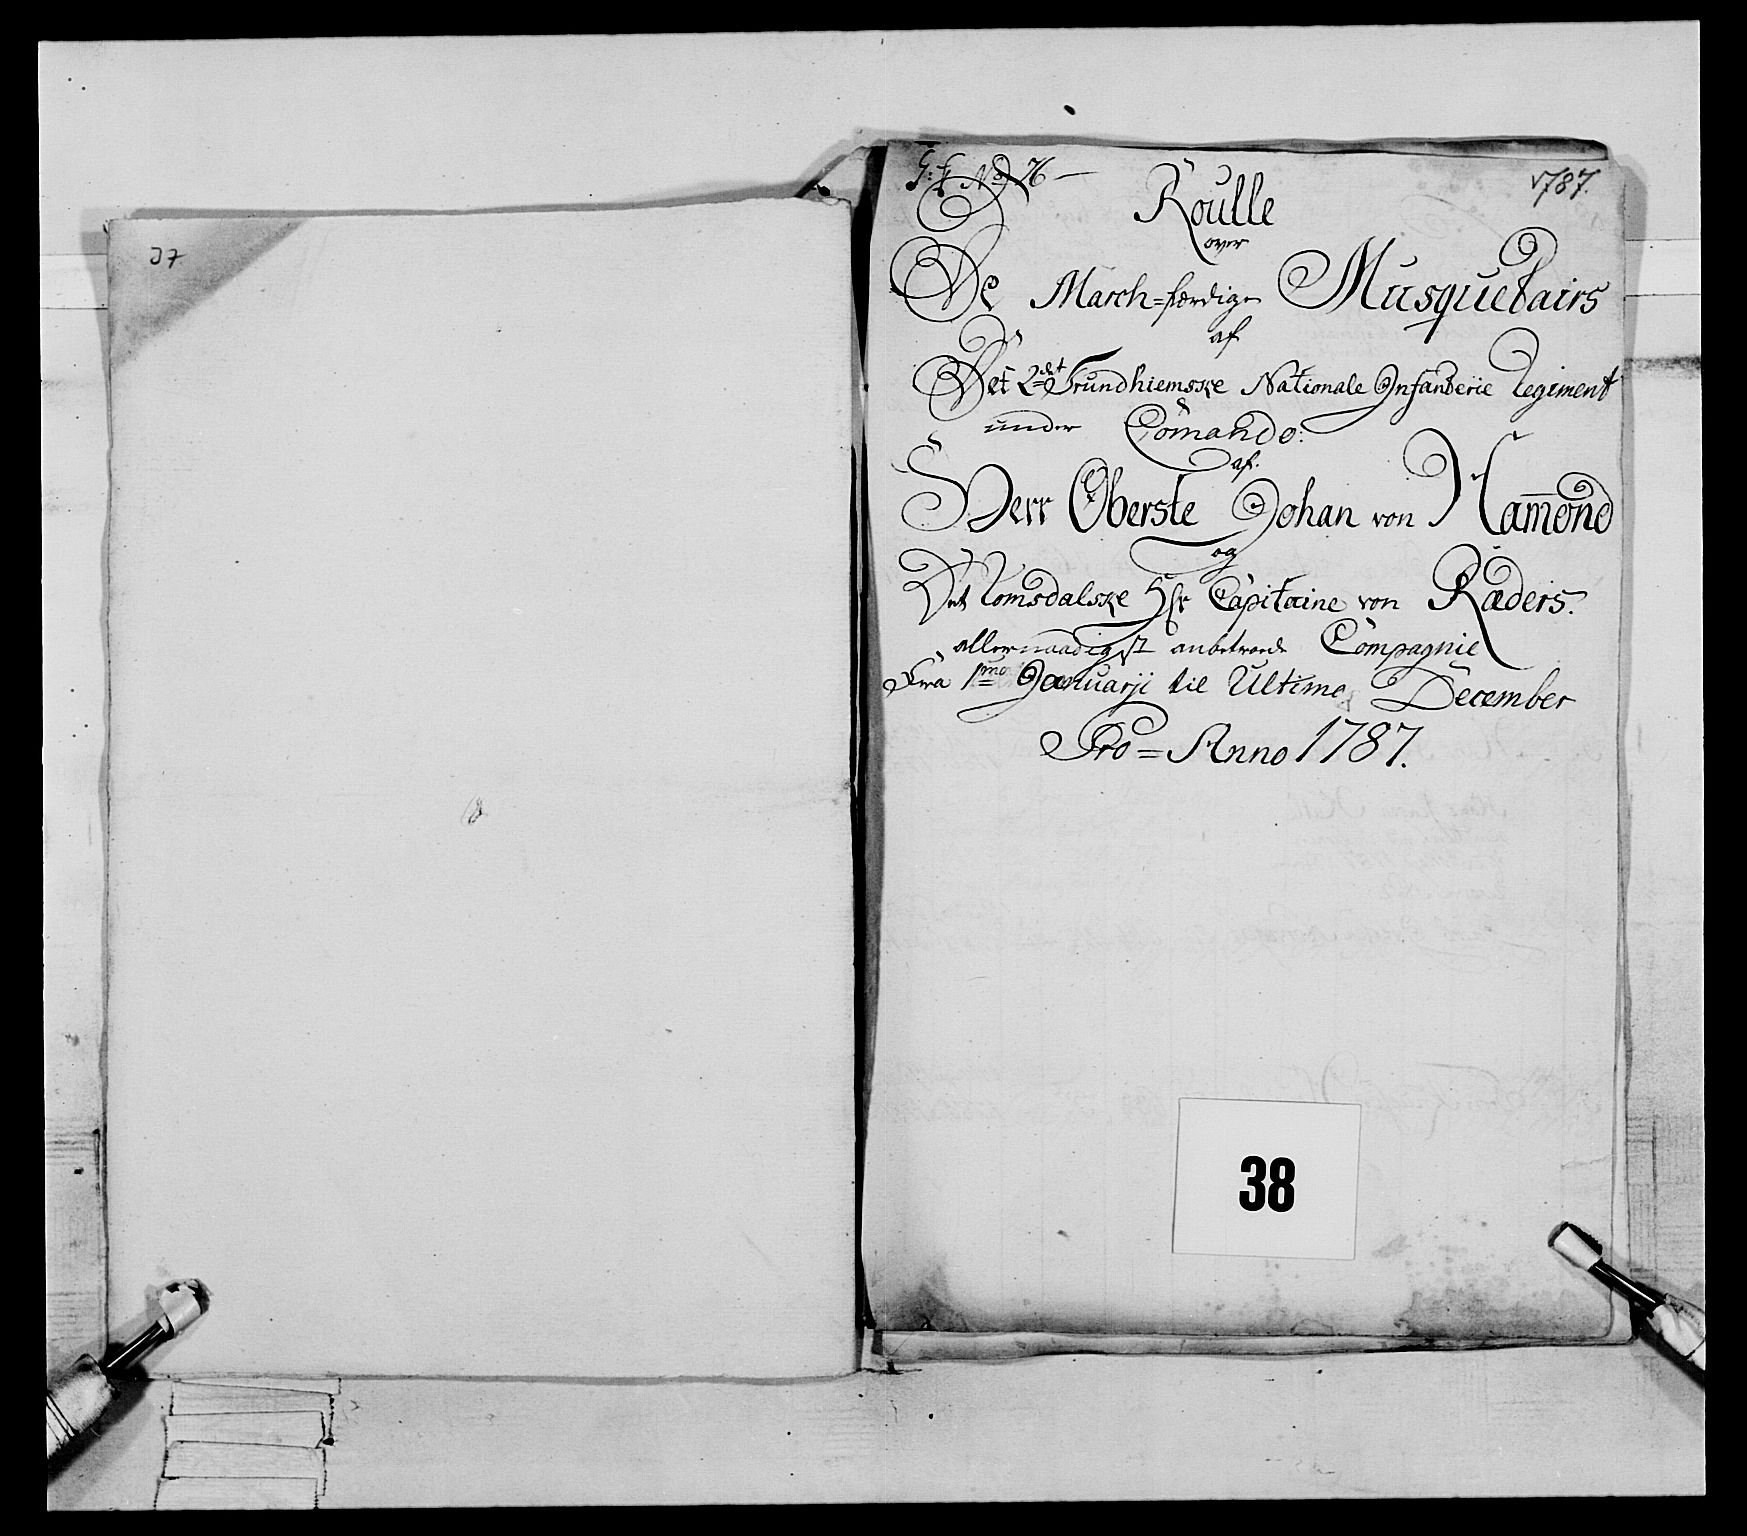 37
G: F No 76 — 1787.
Roulle
over
De March=færdige Musquetairs
af
Det 2det Trundhiemske Nationale Infanterie Regiment
under Com̄ando.
af.
Herr Oberste Johan von Ham̄ond
og
Det Romsdalske Hr Capitaine von Ræders.
allernaadigst anbetroede Compagnie
Fra 1mo Januarji til Ultimo December
Pro = Anno 1787.
38